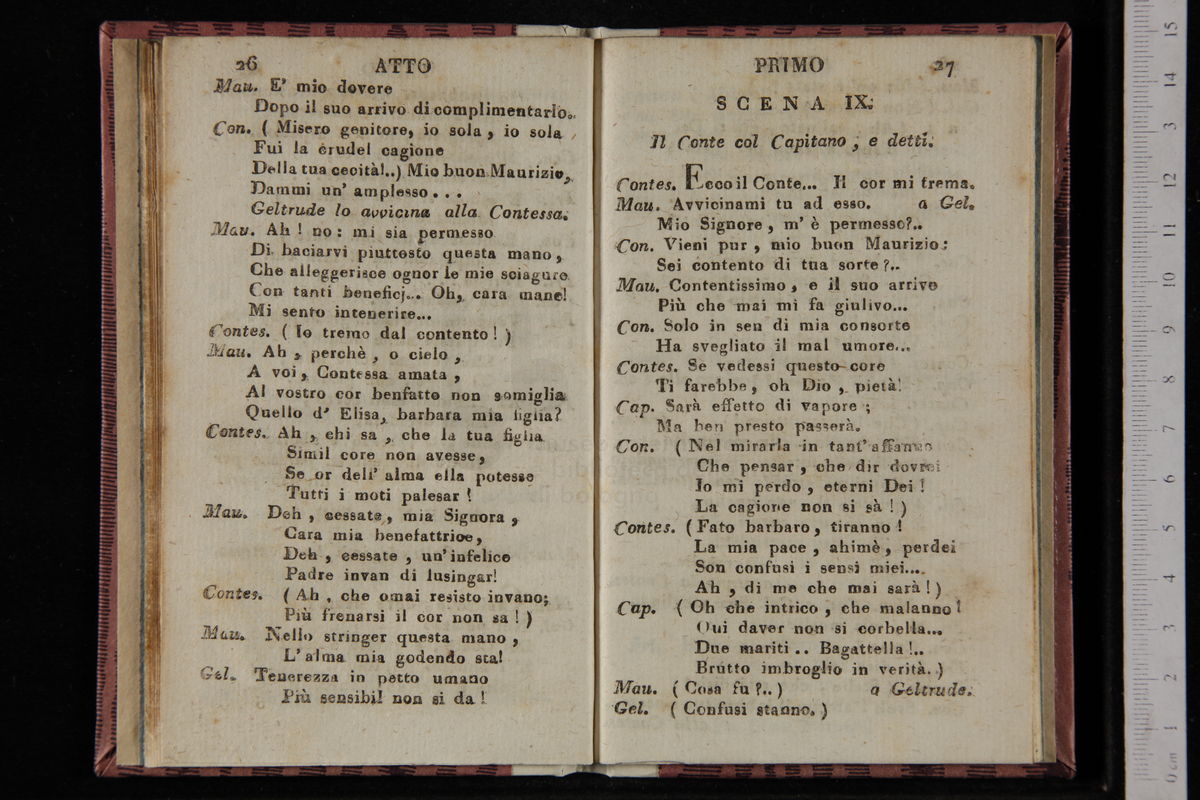 26 ATTO
Mau. E' mio dovere
Dopo il suo arrivo di complimentarlo.
Con. ( Misero genitore, io sola, io sola
Fui la crudel cagione
Della tua cecità!..) Mio buon Maurizio,
Dammi un' amplesso...
Geltrude lo avvicina alla Contessa.
Mau. Ah ! no : mi sia permesso
Di baciarvi piuttosto questa mano,
Che alleggerisce ognor le mie sciagure
Con tanti beneficj... Oh, cara mano!
Mi sento intenerire...
Contes. ( Io tremo dal contento ! )
Mau. Ah, perchè, o cielo,
A voi, Contessa amata,
Al vostro cor benfatto non somiglia
Quello d' Elisa, barbara mia figlia?
Contes. Ah, chi sa, che la tua figlia
Simil core non avesse,
Se or dell' alma ella potesse
Tutti i moti palesar !
Mau. Deh, cessate, mia Signora,
Cara mia benefattrice,
Deh, cessate, un' infelice
Padre invan di lusingar!
Contes. ( Ah, che omai resisto invano;
Più frenarsi il cor non sa ! )
Mau. Nello stringer questa mano,
L' alma mia godendo sta!
Gel. Tenerezza in petto umano
Più sensibil non si da !
PRIMO 27
SCENA IX.
Il Conte col Capitano, e detti.
Contes. Ecco il Conte... Il cor mi trema.
Mau. Avvicinami tu ad esso. a Gel.
Mio Signore, m' è permesso?..
Con. Vieni pur, mio buon Maurizio:
Sei contento di tua sorte?..
Mau. Contentissimo, e il suo arrivo
Più che mai mi fa giulivo...
Con. Solo in sen di mia consorte
Ha svegliato il mal umore...
Contes. Se vedessi questo core
Ti farebbe, oh Dio, pietà!
Cap. Sarà effetto di vapore ;
Ma ben presto passerà.
Con. ( Nel mirarla in tant' affanno
Che pensar, che dir dovrei
Io mi perdo, eterni Dei !
La cagione non si sà ! )
Contes. ( Fato barbaro, tiranno !
La mia pace, ahimè, perdei
Son confusi i sensi miei....
Ah, di me che mai sarà ! )
Cap. ( Oh che intrico, che malanno !
Qui daver non si corbella...
Due mariti .. Bagattella !..
Brutto imbroglio in verità. )
Mau. ( Cosa fu ?.. ) a Geltrude.
Gel. ( Confusi stanno. )